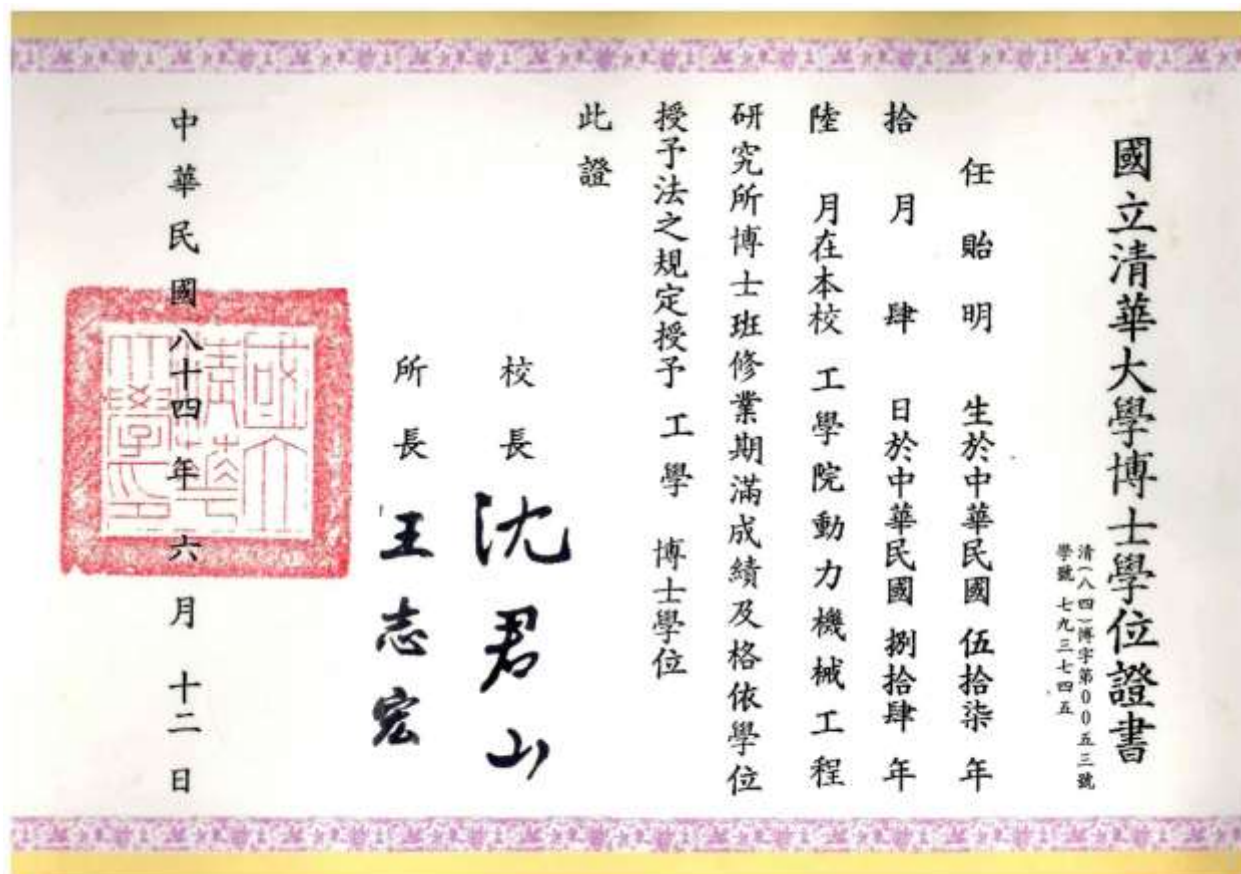 國立清華大學博士學位證書
清(八四)博字第00五三號
學號 七九三七四五
任貽明 生於中華民國 伍拾柒年
拾月 肆 日於中華民國 捌拾肆年
陸 月在本校 工學院動力機械工程
研究所博士班修業期滿成績及格依學位
授予法之規定授予 工學 博士學位
此證
校長 沈君山
所長 王志宏
中華民國八十四年 六月 十二日
國立清華大學印